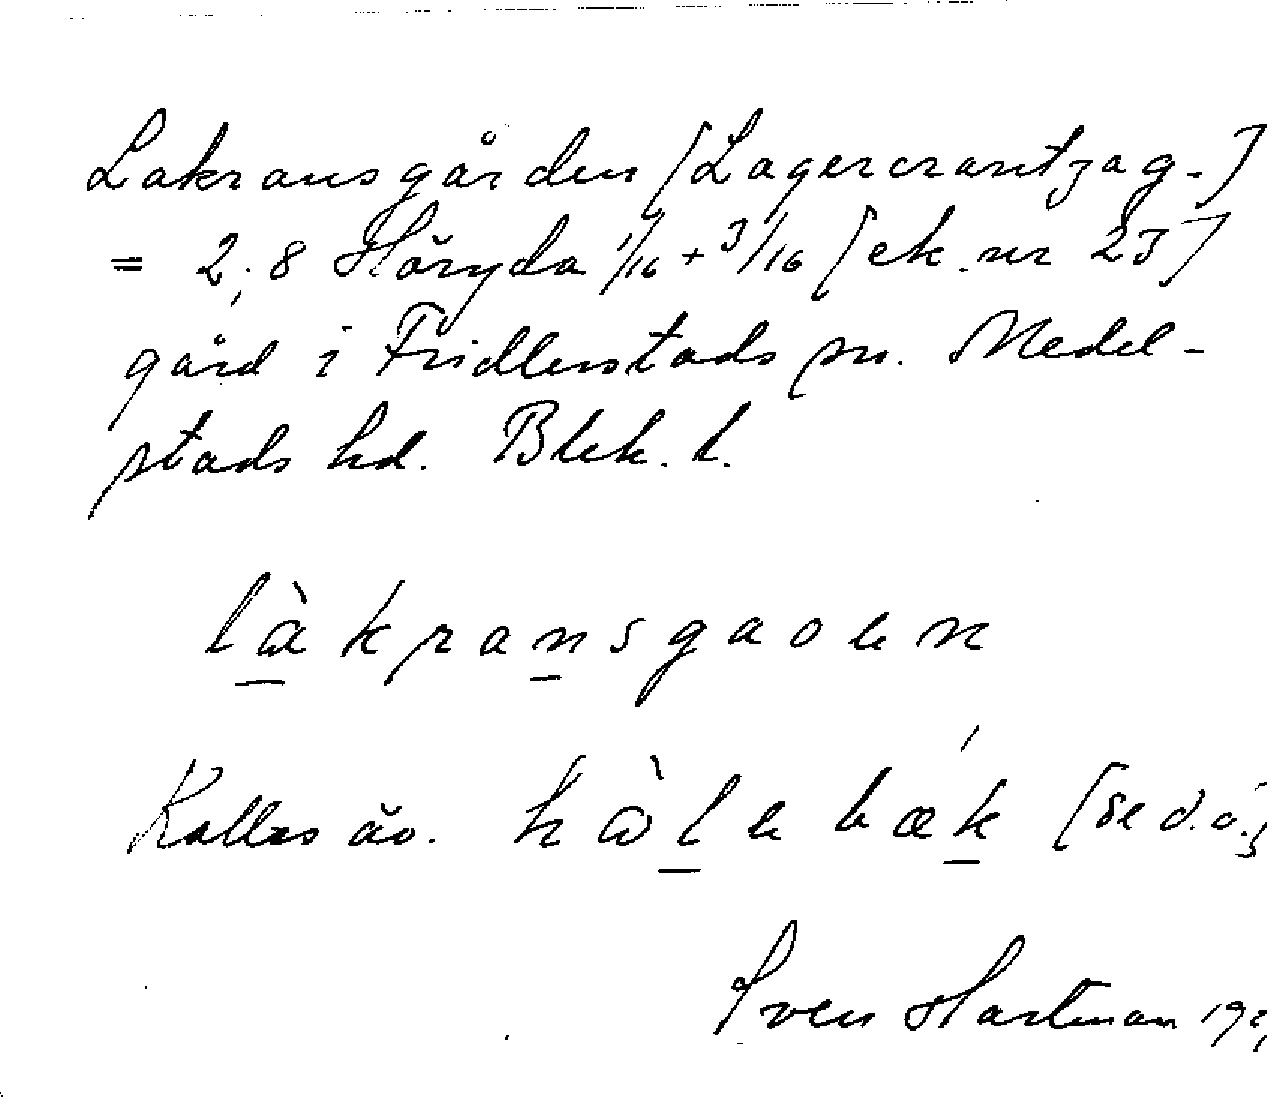 Lakransgården [Lagercrantzag.]
= 2; 8 Höryda 1/16 + 3/16 [ek. nr 23]
gård i Fridlevstads sn. Medel-
stads hd. Blek. l.
làkransgaoen
Kallas äv. hàlebæk [se d.o.]
Sven Hartman